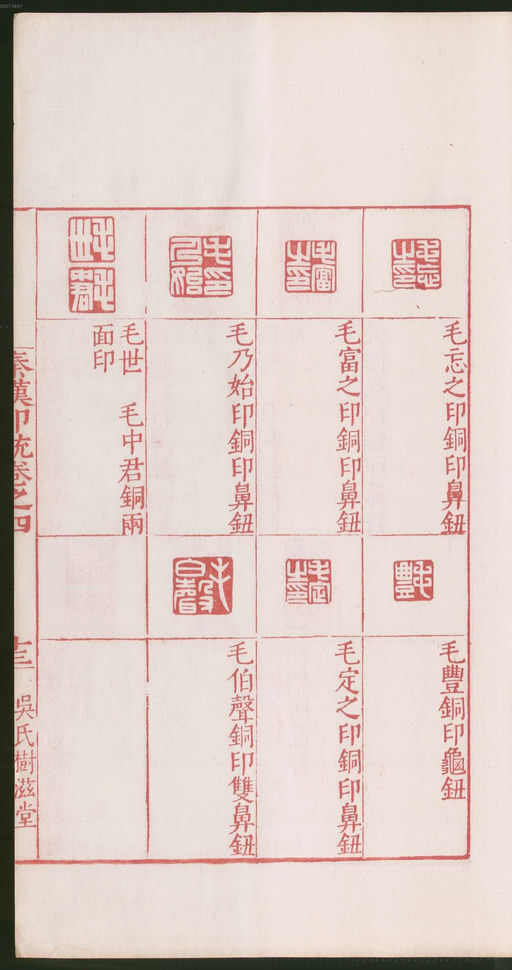 毛忘之印銅印鼻鈕
毛富之印銅印鼻鈕
毛乃始印銅印鼻鈕
毛世　毛中君銅兩
面印
毛豐銅印龜鈕
毛定之印銅印鼻鈕
毛伯聲銅印雙鼻鈕
秦漢印統卷之四
十三
吳氏樹滋堂
00073447